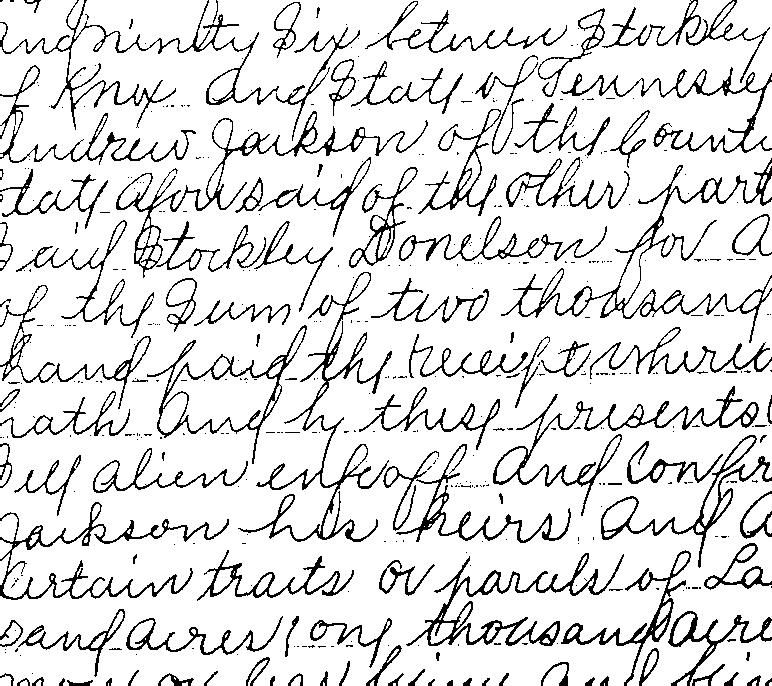 and ninety Six between Stockley
of Knox and State of Tennessee
Andrew Jackson of the Count
tate aforesaid of the other part
Said Stockley Donelson for a
of the Sum of two thousand
hand paid the receipt where
hath and by these presents
Sell alien enfeoff and confir
Jackson his heirs and a
Certain tracts or parcels of La
sand acres one thousand acre
more or less being and